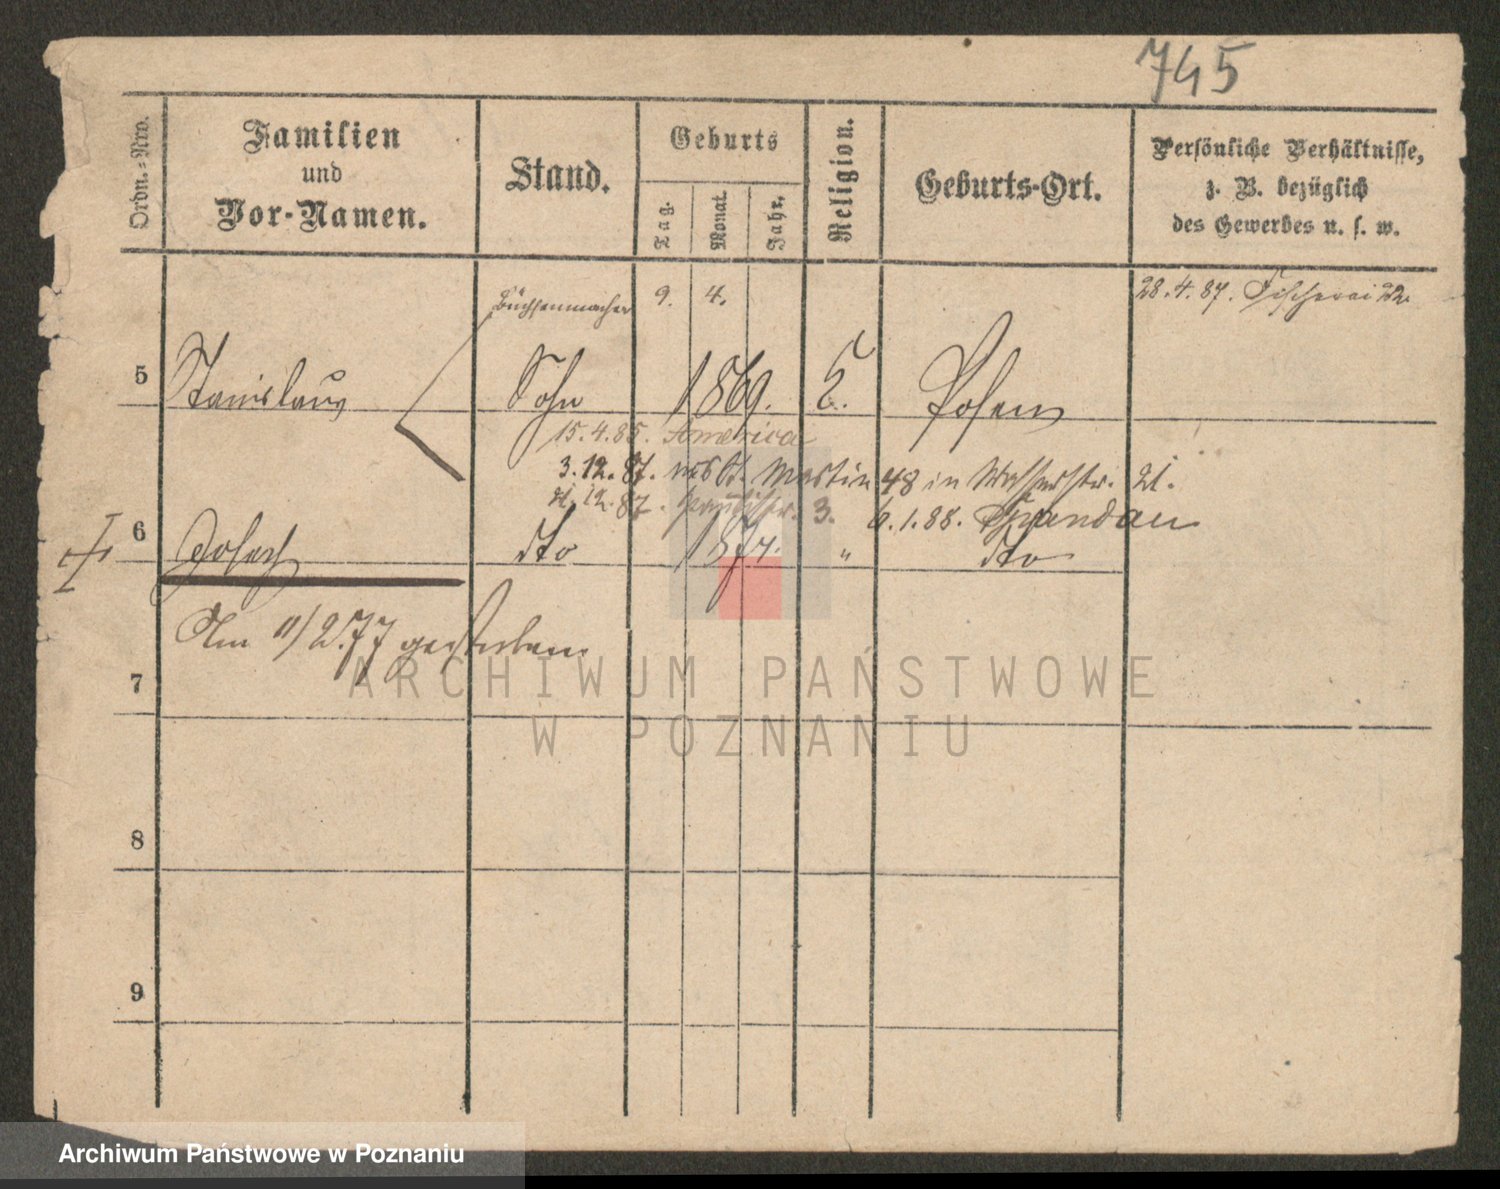 745
Ordn.-Nro.
Familien
und
Vor-Namen.
Stand.
Geburts
Tag.
Monat.
Jahr.
Religion.
Geburts-Ort.
Persönliche Verhältnisse,
z. B. bezüglich
des Gewerbes u. s. w.
Büchsenmacher 9. 4.
28.4.87. Fischerei 22.
5 Stanislaus Sohn 1869. Posen
15.4.85. America
3.12.87. St. Martin 48 in Wasserstr. 21.
12.87. 3. 6.1.88. Spandau
6 Joseph dto 187 " dto
Am 11/2.77 gestorben
7
8
9
ARCHIWUM PAŃSTWOWE
W POZNANIU
Archiwum Państwowe w Poznaniu